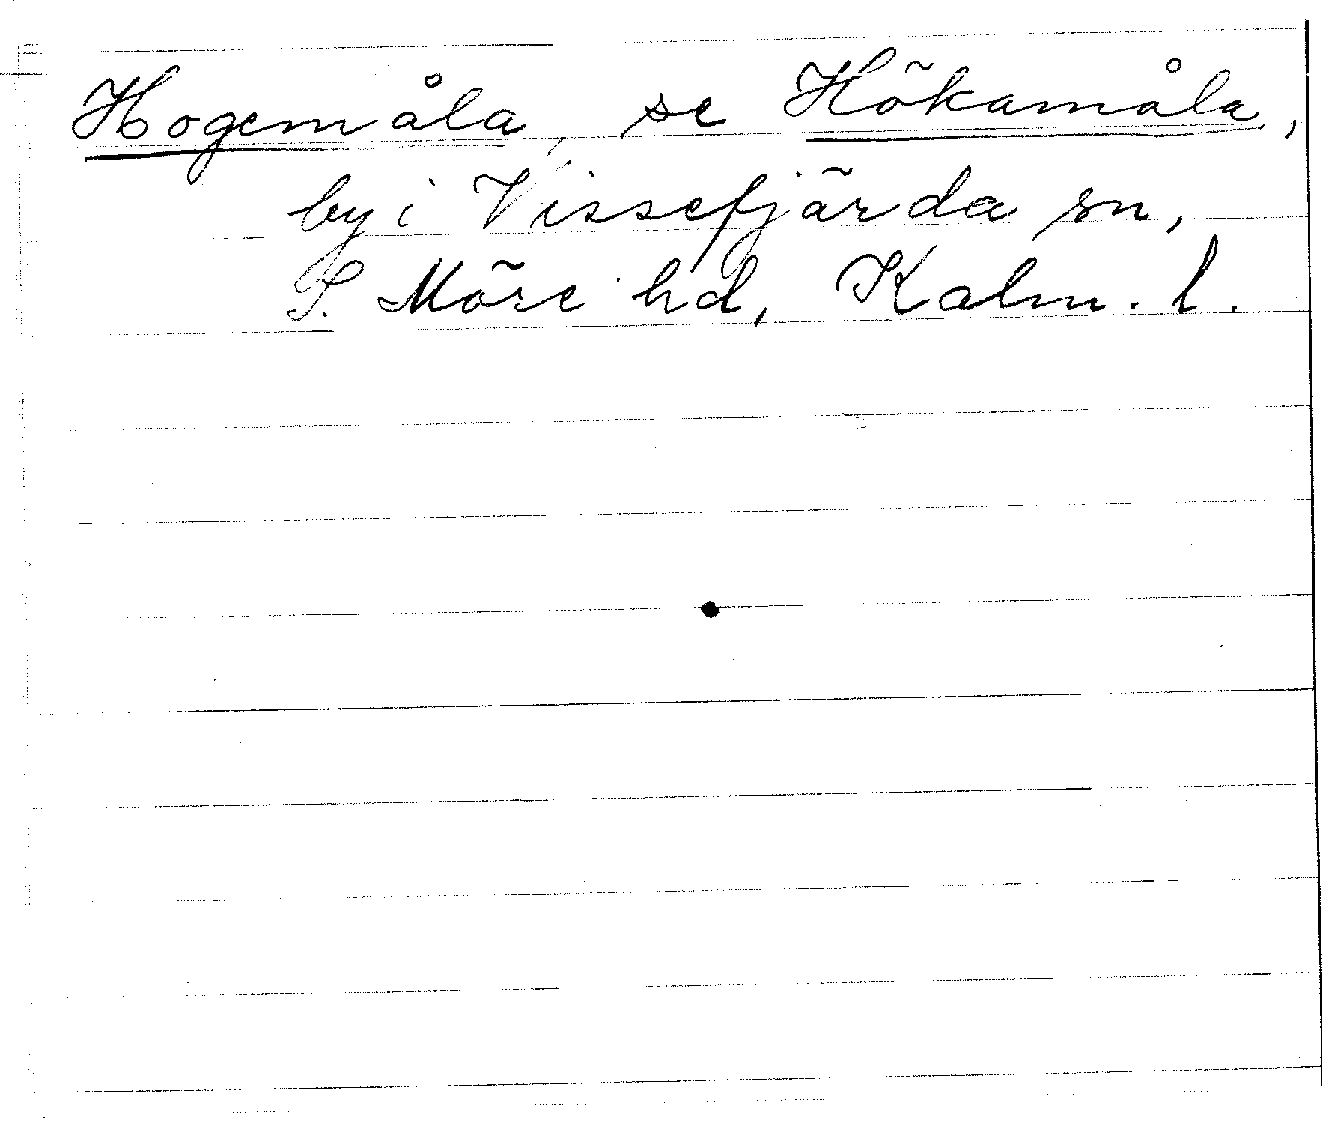 Hogemåla, se Hökamåla,
by i Vissefjärda sn,
S. Möre hd, Kalm. l.